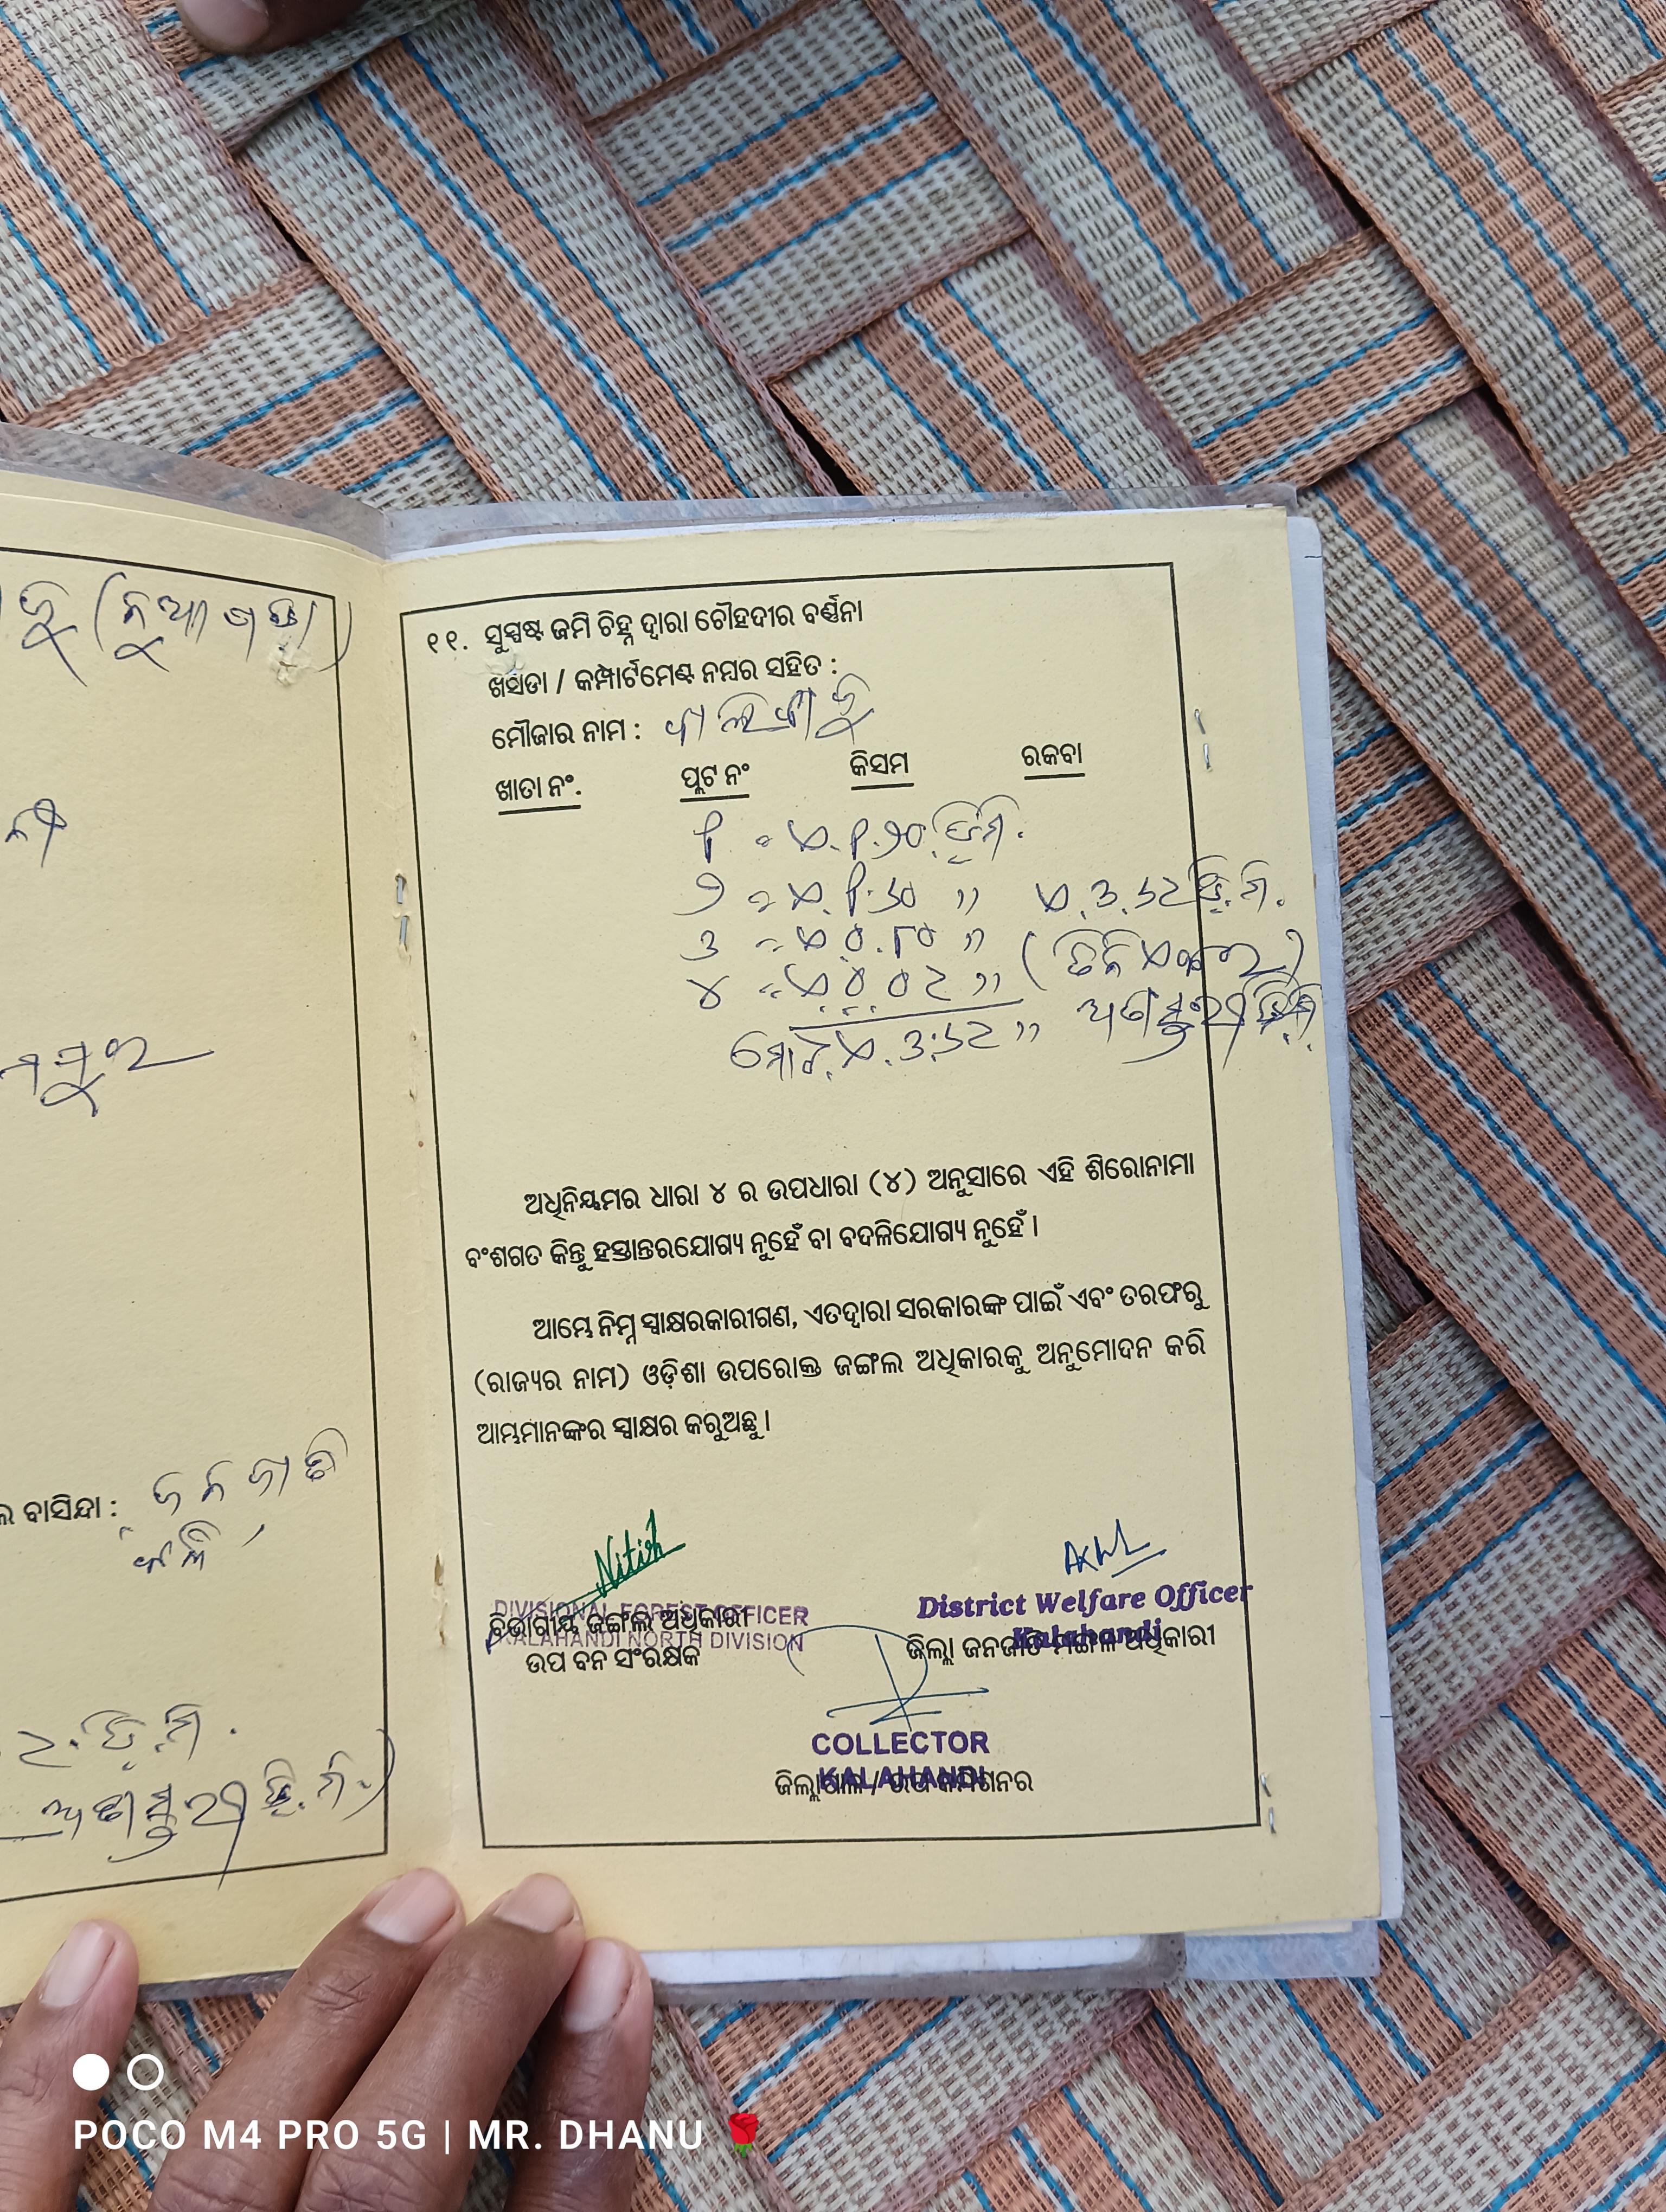 ୧୧. ସୁସ୍ପଷ୍ଟ ଜମି ଚିହ୍ନ ଦ୍ୱାରା ଚୌହଦୀର ବର୍ଣ୍ଣନା
ଖସଡା / କମ୍ପାର୍ଟମେଣ୍ଟ ନମ୍ବର ସହିତ :
ମୌଜାର ନାମ :
ଖାତା ନଂ. ପ୍ଲଟ ନଂ କିସମ ରକବା
୧ = ଏ.୧.୨୦ ଡି.ମି.
୨ = ଏ.୧.୬୦ ,, ଏ.୩.୬୪ ଡି.ମି.
୩ = ଏ.୦.୮୦ ,,
୪ = ଏ.୦.୦୪ ,,
ମୋଟ ଏ.୩.୬୪ ,,
ଅଧିନିୟମର ଧାରା ୪ ର ଉପଧାରା (୪) ଅନୁସାରେ ଏହି ଶିରୋନାମା
ବଂଶଗତ କିନ୍ତୁ ହସ୍ତାନ୍ତରଯୋଗ୍ୟ ନୁହେଁ ବା ବଦଳିଯୋଗ୍ୟ ନୁହେଁ ।
ଆମ୍ଭେ ନିମ୍ନ ସ୍ୱାକ୍ଷରକାରୀଗଣ, ଏତଦ୍ୱାରା ସରକାରଙ୍କ ପାଇଁ ଏବଂ ତରଫରୁ
(ରାଜ୍ୟର ନାମ) ଓଡ଼ିଶା ଉପରୋକ୍ତ ଜଙ୍ଗଲ ଅଧିକାରକୁ ଅନୁମୋଦନ କରି
ଆମ୍ଭମାନଙ୍କର ସ୍ୱାକ୍ଷର କରୁଅଛୁ ।
ବାସିନ୍ଦା : ଜନଜାତି
Nitish
DIVISIONAL FOREST OFFICER
KALAHANDI NORTH DIVISION
ବିଭାଗୀୟ ଜଙ୍ଗଲ ଅଧିକାରୀ
ଉପ ବନ ସଂରକ୍ଷକ
District Welfare Officer
Kalahandi
ଜିଲ୍ଲା ଜନଜାତି ମଙ୍ଗଳ ଅଧିକାରୀ
COLLECTOR
KALAHANDI
ଜିଲ୍ଲାପାଳ / ଉପ କମିଶନର
POCO M4 PRO 5G | MR. DHANU 🌹